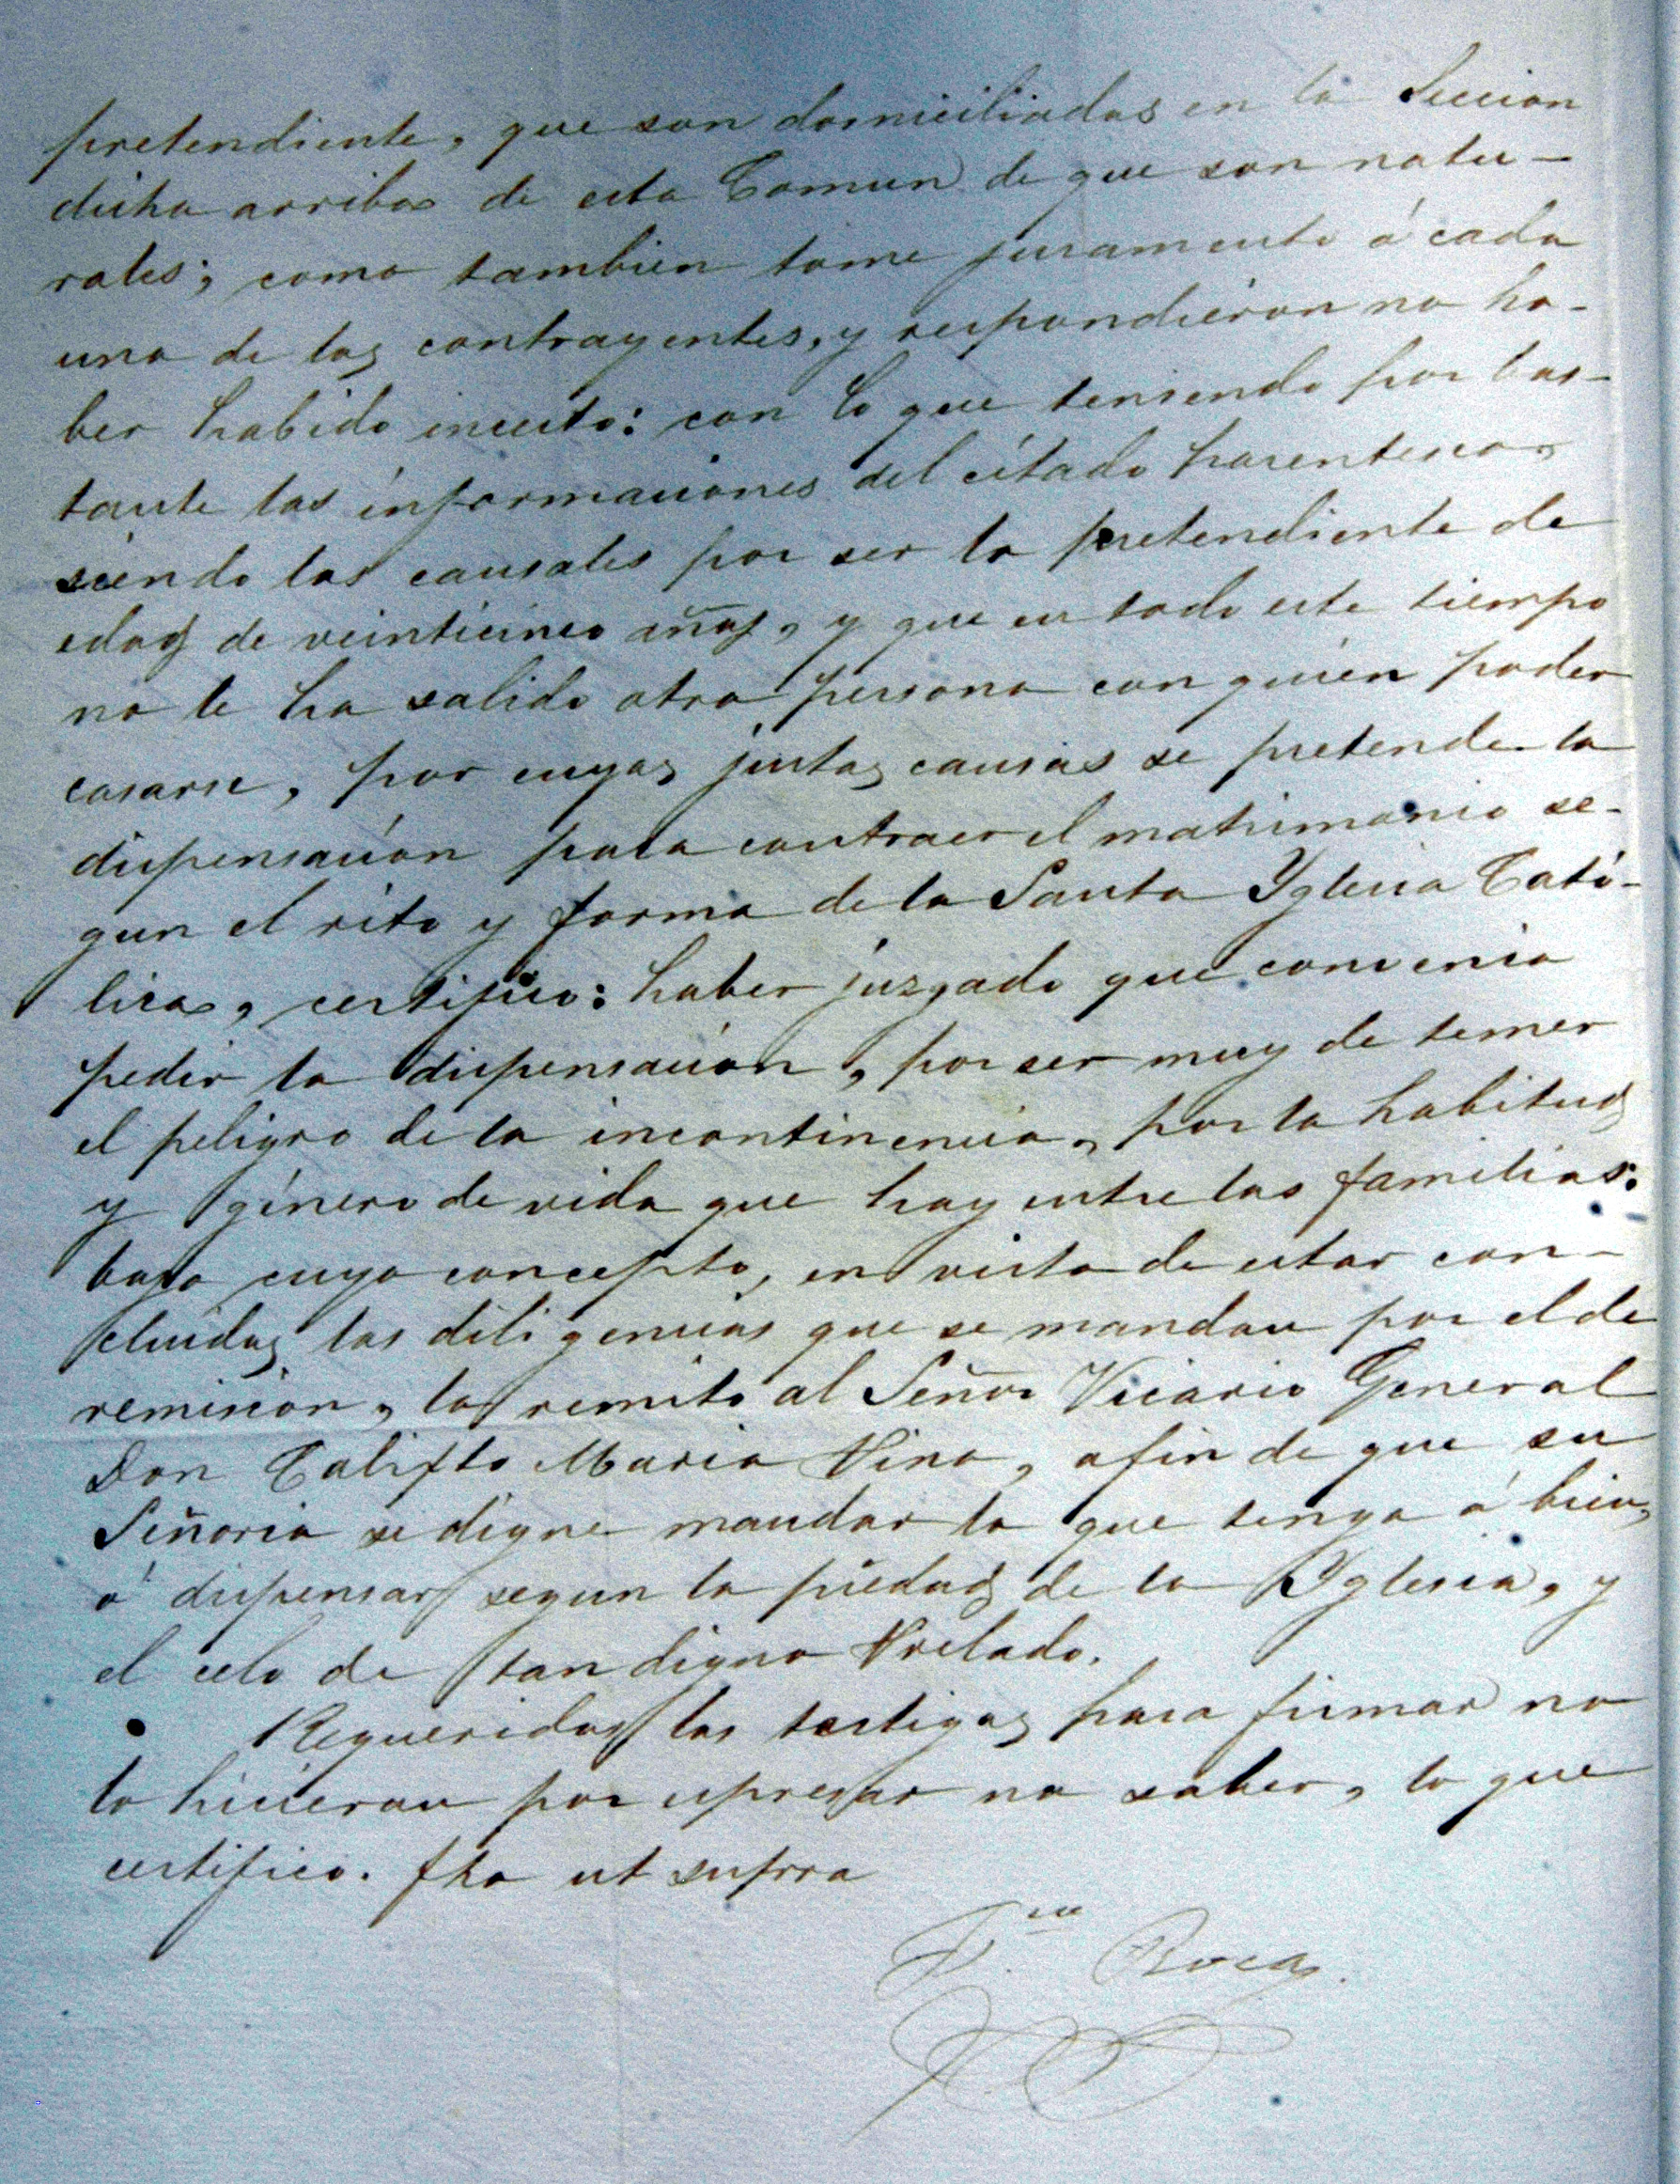 pretendiente, que son domiciliados en la Seccion
dicha arriba de esta Comun de que son natu-
rales; como tambien tome juramento á cada
uno de los contrayentes, y respondieron no ha-
ber habido incesto: con lo que teniendo por bas-
tante las informaciones del citado parentesco,
siendo las causales por ser la pretendiente de
edad de veinticinco años, y que en todo este tiempo
no le ha salido otra persona con quien poder
casarse, por cuyas justas causas se pretende la
dispensacion para contraer el matrimonio se-
gun el rito y forma de la Santa Yglesia Cató-
lica, certifico: haber juzgado que convenia
pedir la dispensacion, por ser muy de temer
el peligro de la incontinencia, por la habitud
y género de vida que hay entre las familias:
bajo cuyo concepto, en vista de estar con-
cluidas las diligencias que se mandan por el de
remision, las remito al Señor Vicario General
Don Calisto Maria Pina, afin de que su
Señoria se digne mandar lo que tenga á bien,
ó dispensar segun la piedad de la Yglesia, y
el celo de tan digno Prelado.
Requeridos los testigos para firmar no
lo hicieron por espresar no saber, lo que
certifico. fho ut supra
Roca